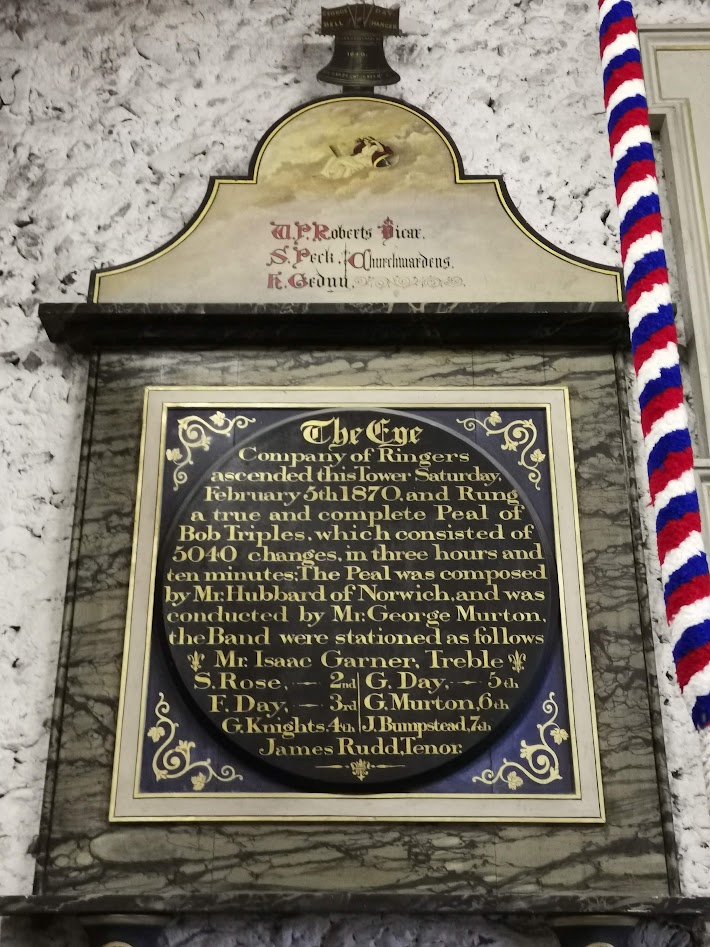 GEORGE DAY
BELL HANGER
W.P. Roberts Vicar.
S. Peck. Churchwardens.
K. Gedny.
The Eye
Company of Ringers
ascended this Tower Saturday,
February 5th 1870, and Rung
a true and complete Peal of
Bob Triples, which consisted of
5040 changes, in three hours and
ten minutes; The Peal was composed
by Mr. Hubbard of Norwich, and was
conducted by Mr. George Murton,
the Band were stationed as follows
Mr. Isaac Garner, Treble
S. Rose, — 2nd G. Day, — 5th
F. Day, — 3rd G. Murton, 6th
G. Knights 4th J. Bumpstead, 7th
James Rudd, Tenor.